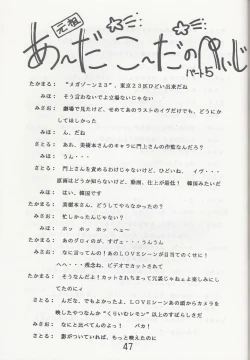 元祖
あ〜だ こ〜だのぺぃじ
パート5
たかまる： “メガゾーン２３”，東京２３区ひどい出来だね
みほ： そう言わないでよ立場ないじゃない
みさお： 劇場で見たけど、せめてあのラストのイヴだけでも、どうにか
してほしかった
みほ： ん、だね
さとる： あれ、美樹本さんのキャラに門上さんの作監なんだろ？
みほ： うん・・・
さとる： 門上さんを責めるわけじゃないけど、ひどいね、イヴ・・・
原画はどうか知らないけど、動画、仕上が最低！ 韓国みたいだ
みほ： はい、韓国です
たかまる： 美樹本さん、どうしてやらなかったの？
みさお： 忙しかったんじゃない？
みほ： ホッ ホッ ホッ ヘェ〜
たかまる： あのグロィのが、すげェ・・・うんうん
みさお： なに言ってんの！あのＬＯＶＥシーンが目当てのくせに！
へへ・・・残念ね、ビデオでカットされてて
たかまる： そうなんだよ！カットされちまって冗談じゃねェよと楽しみにし
てたのにィ
さとる： んだな、でもよかったよ、ＬＯＶＥシーンあの頃からカメラを
映したやつなんか“くりいむレモン”以上のすばらしさだ
みさお： なにと出べてんのよっ！ バカ！
さとる： 影がついていれば、もっと映えたのに
47